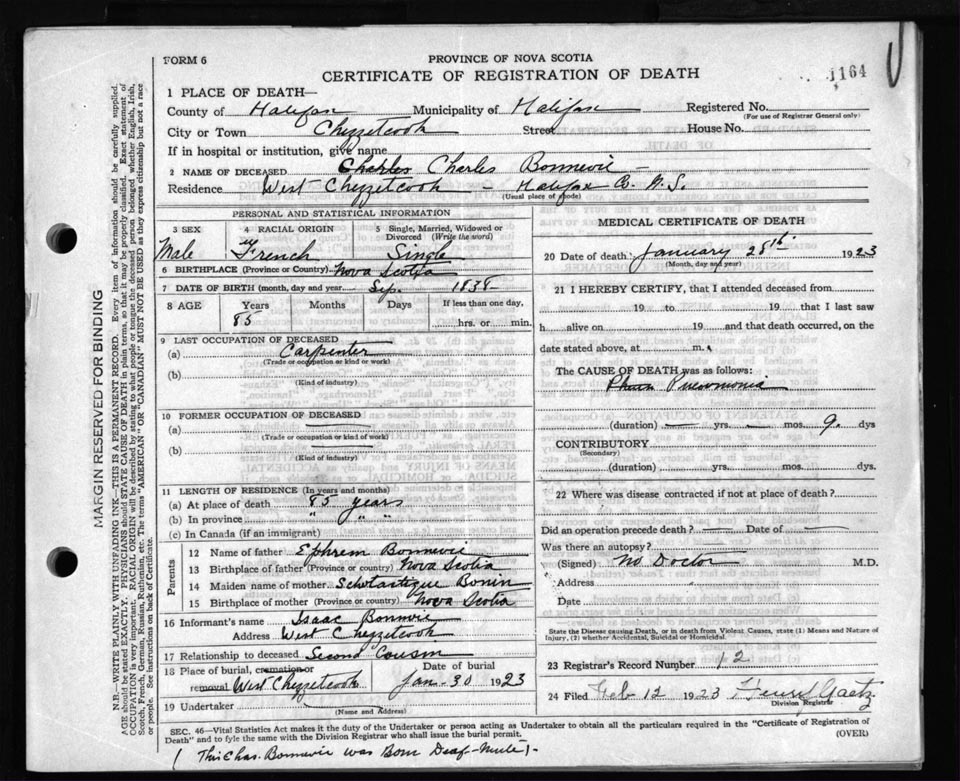 FORM 6
PROVINCE OF NOVA SCOTIA
CERTIFICATE OF REGISTRATION OF DEATH
1164
1 PLACE OF DEATH—
County of Halifax Municipality of Halifax Registered No.
(For use of Registrar General only)
City or Town Chezzetcook Street House No.
If in hospital or institution, give name
2 NAME OF DECEASED Charles Charles Bonnevie —
Residence West Chezzetcook — Halifax Co. N.S.
(Usual place of abode)
PERSONAL AND STATISTICAL INFORMATION
3 SEX 4 RACIAL ORIGIN 5 Single, Married, Widowed or Divorced (Write the word)
Male French Single
6 BIRTHPLACE (Province or Country) Nova Scotia
7 DATE OF BIRTH (month, day and year) Sep. 1838 —
8 AGE Years Months Days If less than one day,
85 hrs. or min.
9 LAST OCCUPATION OF DECEASED
(a) Carpenter
(Trade or occupation or kind of work)
(b)
(Kind of industry)
10 FORMER OCCUPATION OF DECEASED
(a)
(Trade or occupation or kind of work)
(b)
(Kind of industry)
11 LENGTH OF RESIDENCE (In years and months)
(a) At place of death 85 years
(b) In province " " "
(c) In Canada (if an immigrant)
Parents
12 Name of father Ephrem Bonnevie
13 Birthplace of father (Province or country) Nova Scotia
14 Maiden name of mother Scholastique Bonin
15 Birthplace of mother (Province or country) Nova Scotia
16 Informant's name Isaac Bonnvie
Address West Chezzetcook
17 Relationship to deceased Second Cousin
18 Place of burial, cremation or removal West Chezzetcook Date of burial Jan. 30 1923
19 Undertaker
(Name and Address)
MEDICAL CERTIFICATE OF DEATH
20 Date of death January 28th 1923
(Month, day and year)
21 I HEREBY CERTIFY, that I attended deceased from
19 to 19 that I last saw
h alive on 19 and that death occurred, on the
date stated above, at m.
The CAUSE OF DEATH was as follows:
Pneumonia
(duration) — yrs. — mos. 9. dys
CONTRIBUTORY
(Secondary)
(duration) yrs. mos. dys.
22 Where was disease contracted if not at place of death?
Did an operation precede death? — Date of —
Was there an autopsy?
(Signed) No Doctor M.D.
Address
Date
State the Disease causing Death, or in death from Violent Causes, state (1) Means and Nature of
Injury, (2) whether Accidental, Suicidal or Homicidal.
23 Registrar's Record Number 12
24 Filed Feb 12 1923 Henry Gaetz
Division Registrar
SEC. 46—Vital Statistics Act makes it the duty of the Undertaker or person acting as Undertaker to obtain all the particulars required in the "Certificate of Registration of
Death" and to fyle the same with the Division Registrar who shall issue the burial permit.
(OVER)
( This Chas. Bonnevie was Born Deaf-Mute) -
MARGIN RESERVED FOR BINDING
N.B.—WRITE PLAINLY WITH UNFADING INK—THIS IS A PERMANENT RECORD. Every item of information should be carefully supplied.
AGE should be stated EXACTLY. PHYSICIANS should STATE CAUSE OF DEATH in plain terms, so that it may be properly classified. Exact statement of
OCCUPATION is very important. RACIAL ORIGIN will be described by stating to what people or tongue the deceased person belonged whether English, Irish,
Scotch, French, German, Russian, Ruthenian, etc. The terms "AMERICAN" OR "CANADIAN" MUST NOT BE USED as they express citizenship but not a race
or people. See instructions on back of Certificate.